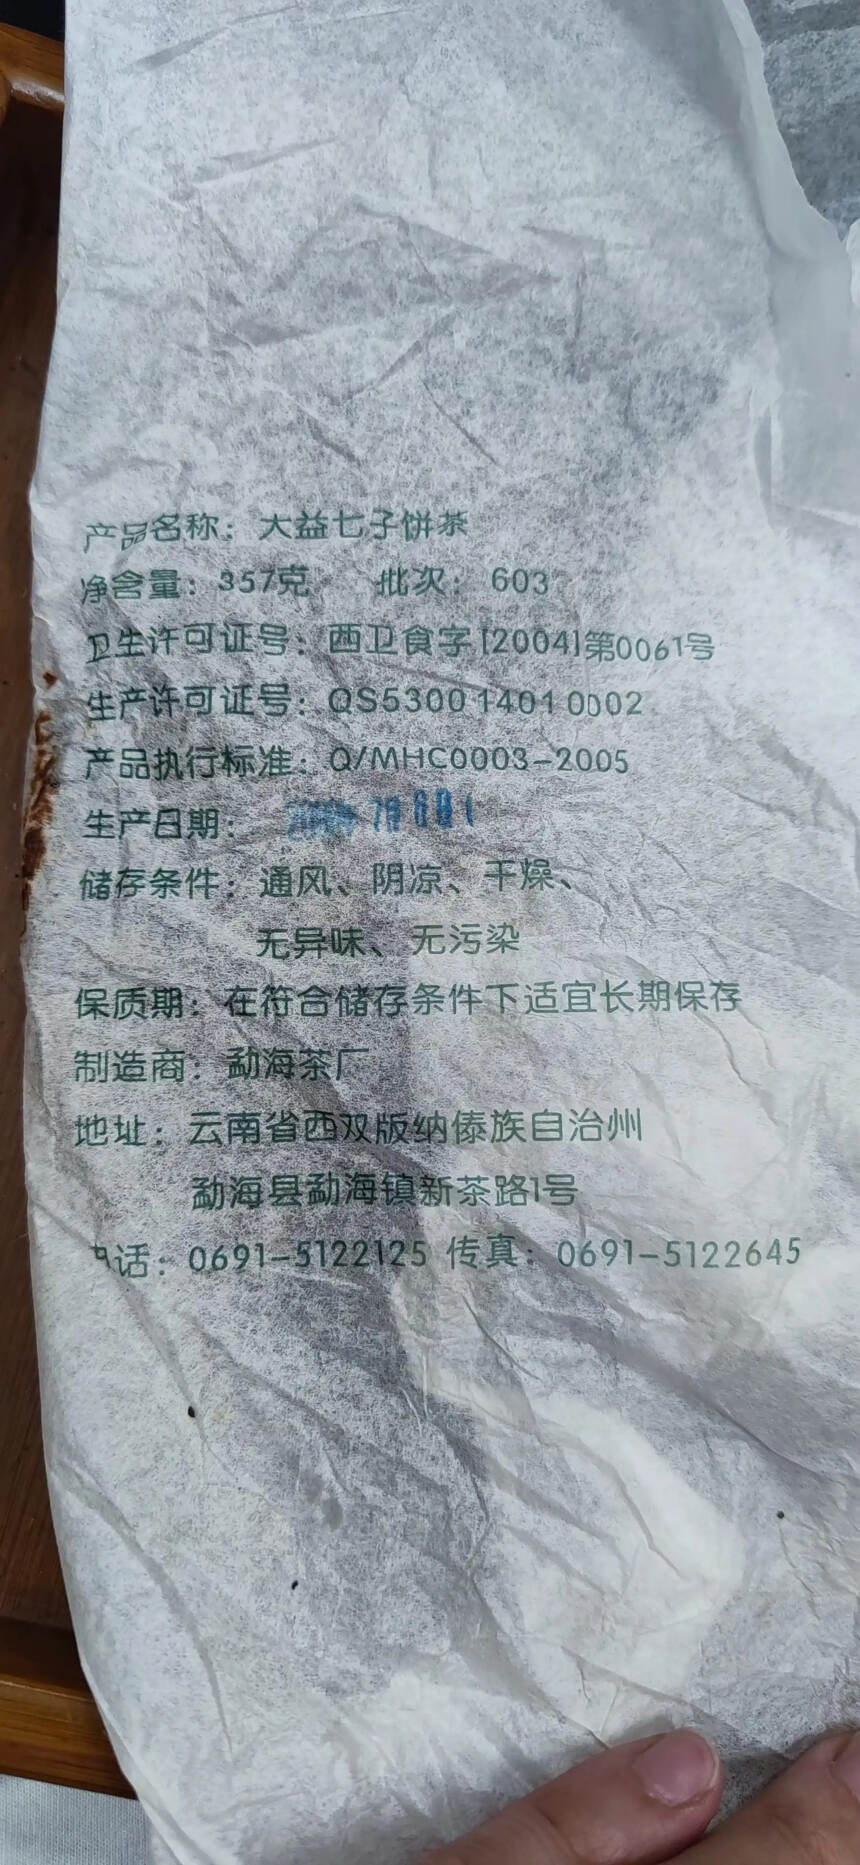 产品名称：大益七子饼茶
净含量：357克 批次：603
卫生许可证号：西卫食字[2004]第0061号
生产许可证号：QS5300 1401 0002
产品执行标准：Q/MHC0003-2005
生产日期：
储存条件：通风、阴凉、干燥、
无异味、无污染
保质期：在符合储存条件下适宜长期保存
制造商：勐海茶厂
地址：云南省西双版纳傣族自治州
勐海县勐海镇新茶路1号
话：0691-5122125 传真：0691-5122645